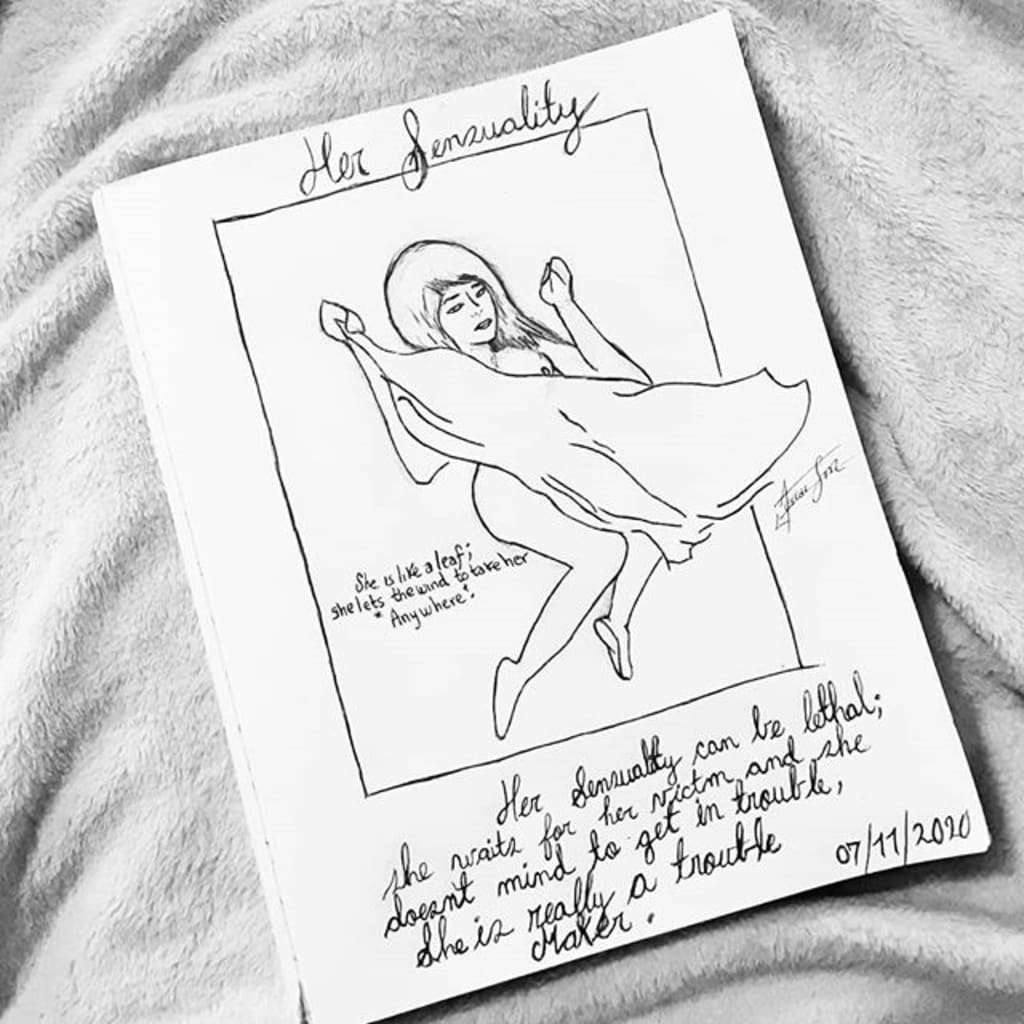 Her Sensuality
She is like a leaf;
she lets the wind to take her
"Anywhere".
Her Sensuality can be lethal;
she waits for her victm and she
doesnt mind to get in trouble,
She is really a trouble
Maker.
07/11/2020